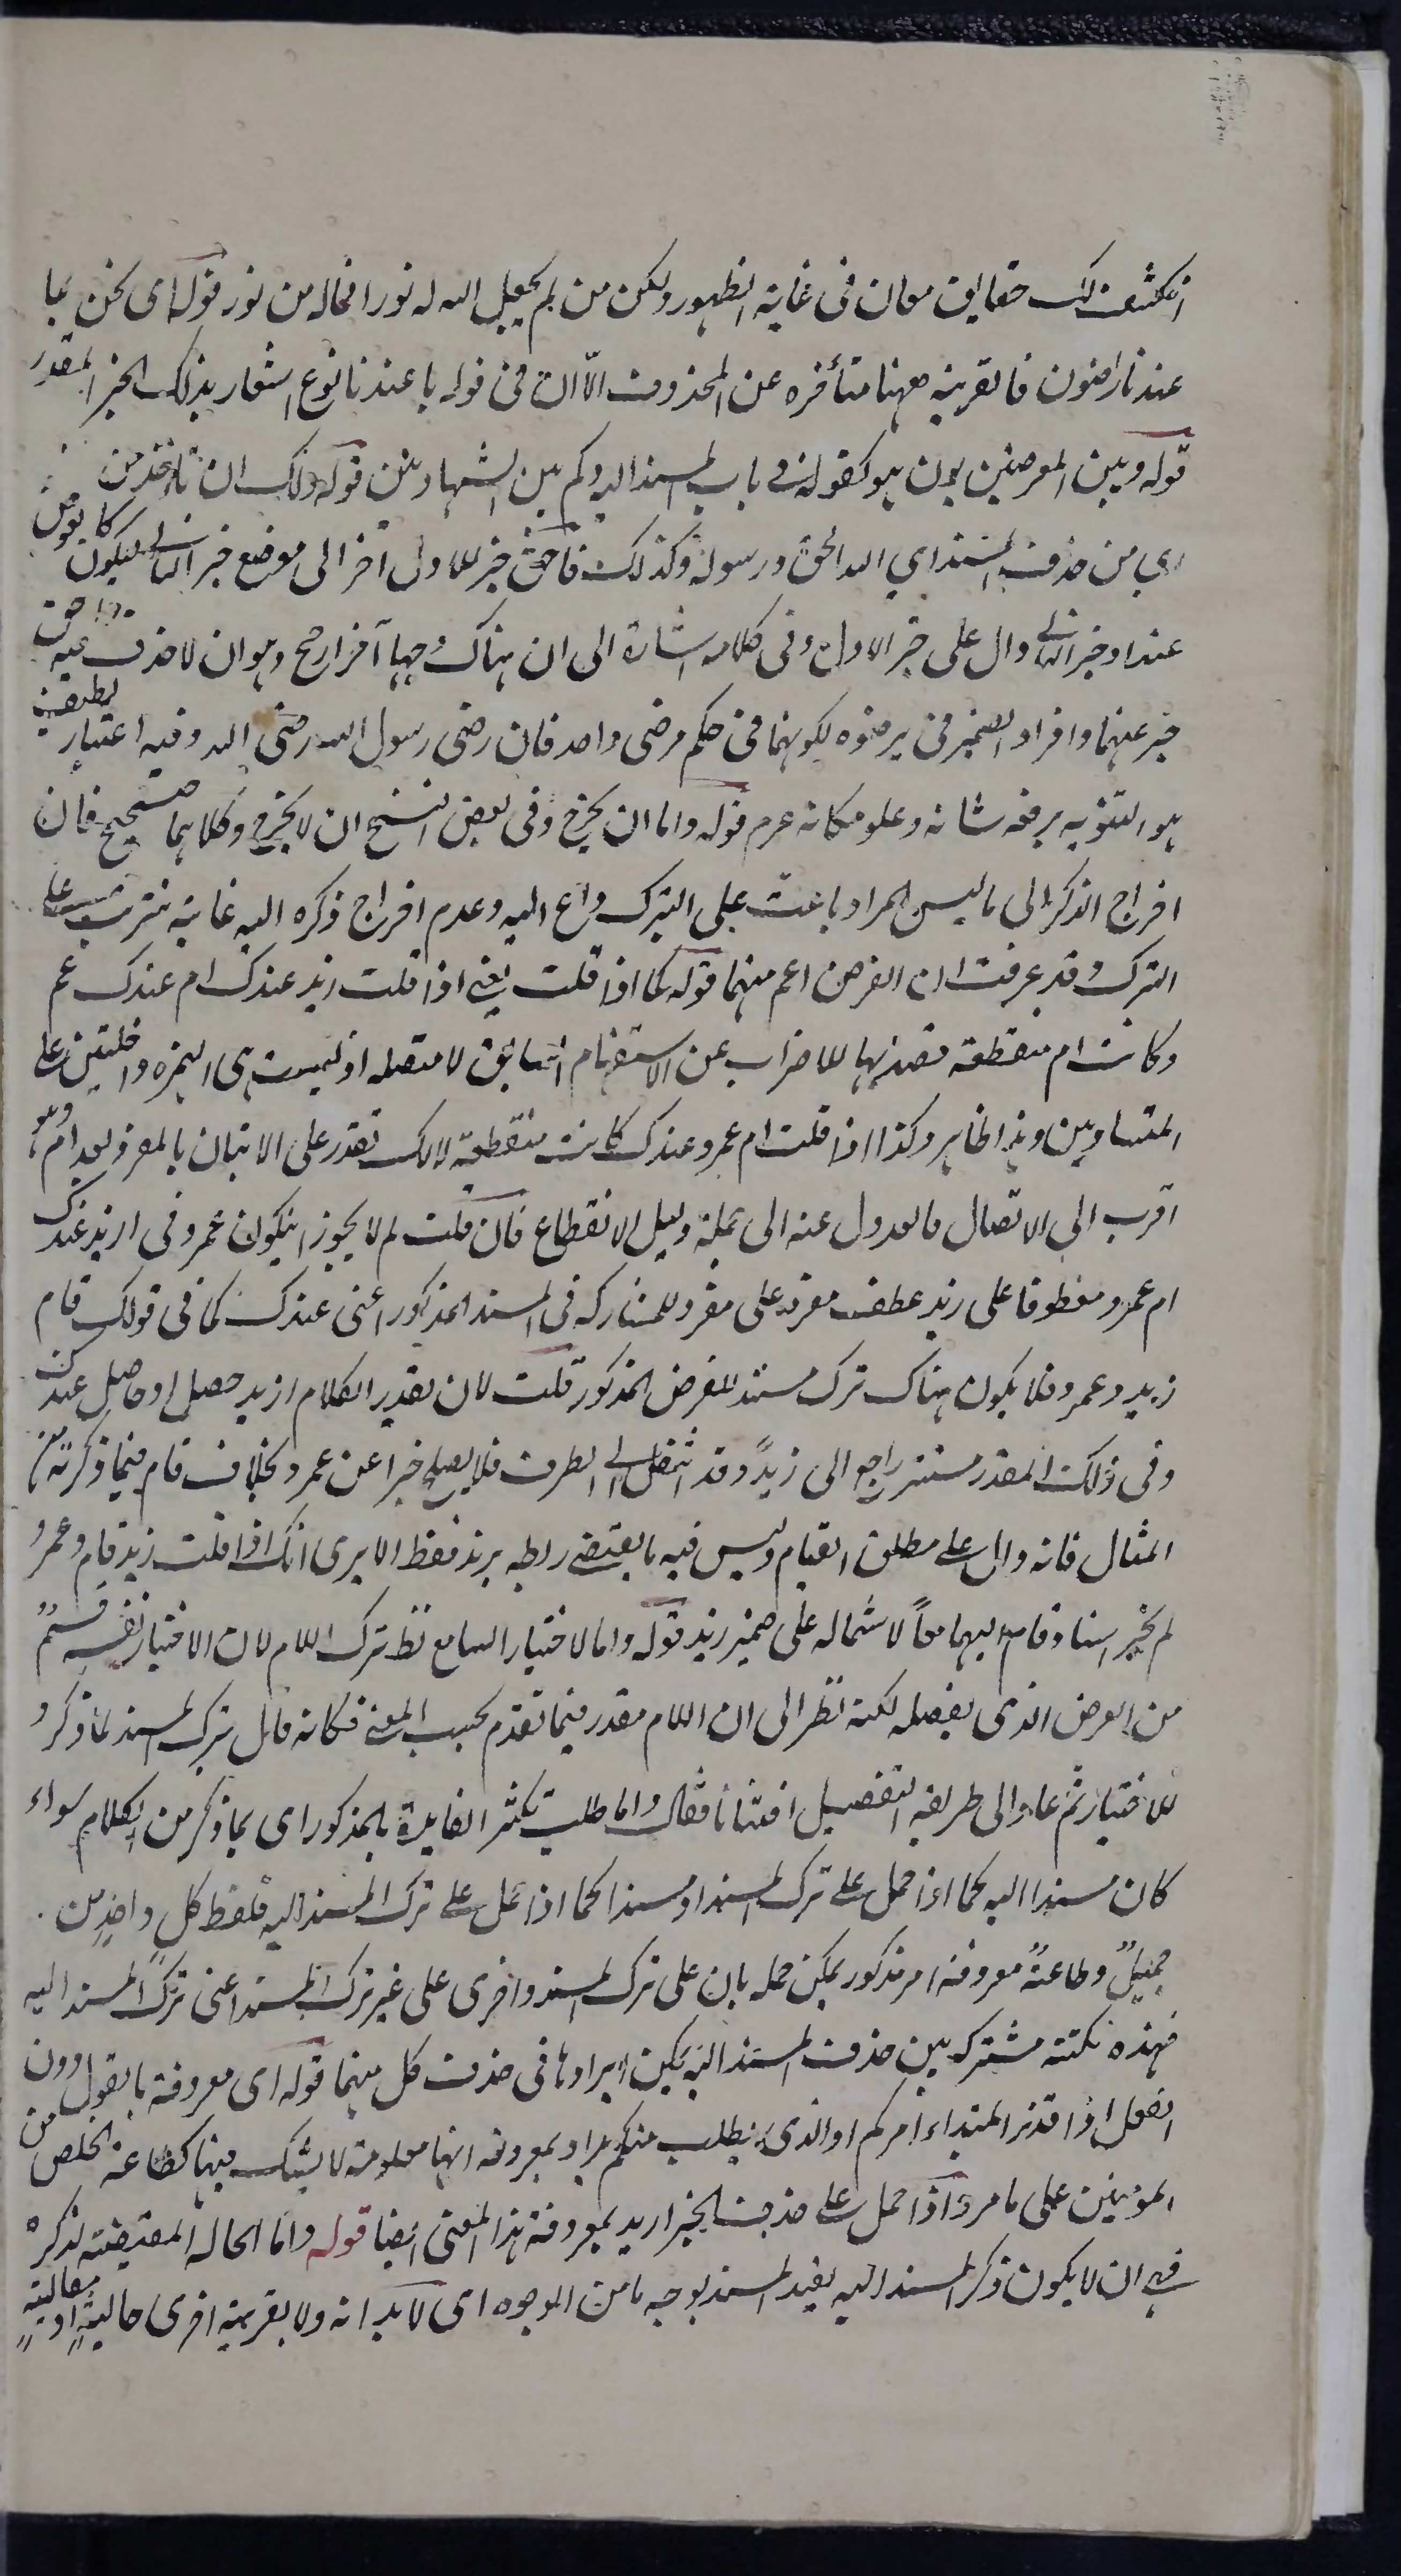 انكشف لك حقايق معان في غاية الظهور ولكن من لم يجعل الله له نورا فماله من نور قوله اى نحن بما
عندنا راضون فالقرينة ههنا متأخره عن المحذوف الا ان في قوله بما عندنا نوع اشعار بذلك الخبر المقدر
قوله وبين المعرضين بون هو كقوله في باب المسند اليه وكم بين الشهادتين قوله ولك ان تأخذ من
اى من حذف المسند اى الله احق ورسوله كذلك فاحق خبر للاول اخر الى موضع خبر الثاني ليكون كالعوض
عنه او خبر الثاني دال على خبر الاول وفي كلامه اشارة الى ان هناك وجها آخر ارجح وهو ان لا حذف فيه واحق
خبر عنهما وافراد الضمير في يرضوه لكونهما في حكم مرضى واحد فان رضى رسول الله رضى الله وفيه اعتبار لطيف
هو التنويه برفعة شانه وعلو مكانه عرم قوله واما ان يخرج وفي بعض النسخ ان لا يخرج وكلاهما صحيح فان
اخراج الذكر الى ما ليس المراد باعث على الترك داع اليه وعدم اخراج ذكره اليه غاية تترتب على
الترك وقد عرفت ان الغرض اعم منهما قوله كما اذا قلت يعني اذا قلت ازيد عندك ام عندك عمرو
وكانت ام منقطعة قصد بها للاضراب عن الاستفهام السابق لا متصله اذ ليست هى الهمزه داخلتين على
المتساويين وهذا ظاهر وكذا اذا قلت ام عمرو عندك كانت منقطعة لانك تقدر على الاتيان بالمفرد بعد ام وهو
اقرب الى الاتصال فالعدول عنه الى جملة دليل الانقطاع فان قلت لم لا يجوز ان يكون عمرو في ازيد عندك
ام عمرو معطوفا على زيد عطف مفرد على مفرد للمشاركه في المسند المذكور اعنى عندك كما في قولك قام
زيد وعمرو فلا يكون هناك ترك مسند للغرض المذكور قلت لان تقدير الكلام ازيد حصل او حاصل عندك
وفي ذلك المقدر مستتر راجع الى زيد وقد انتقل الى الظرف فلا يصلح خبرا عن عمرو بخلاف قام فيما ذكرته من
المثال فانه دال على مطلق القيام ليس فيه ما يقتضي ربطه بزيد فقط الا يرى انك اذا قلت زيد قام وعمرو
لم يجز اسناد قام اليهما معاً لاشتماله على ضمير زيد قوله واما لاختبار السامع نظ ترك اللام لان الاختبار نفسه قسم
من الغرض الذى يفصله لكنه نظر الى ان اللام مقدر فيما تقدم بحسب المعنى فكانه قال يترك المسند لما ذكر و
للاختبار ثم عاد الى طريقة التفصيل افتنانا فقال واما طلب تكثر الفايدة بالمذكور اى بما ذكر من الكلام سواء
كان مسندا اليه كما اذا حمل على ترك المسند او مسندا كما اذا حمل على ترك المسند اليه فلفظ كل واحد من
جميل وطاعة معروفة امر مذكور يمكن حمله بان على ترك المسند واخرى على غير ترك المسند اعنى ترك المسند اليه
فهذه نكتة مشتركه بين حذف المسند اليه يمكن ايرادها في حذف كل منهما قوله اى معروفة بالقول دون
الفعل اذا قدر المبتداء امركم او الذى يطلب منكم يراد بمعروفه انها معلومة لا يشك فيها كطاعة الخلص من
المومنين على ما مر واذا حمل على حذف الخبر اريد بمعروفة هذا المعنى ايضا قوله واما الحالة المقتضية لذكره
فهي ان لا يكون ذكر المسند اليه يفيد المسند بوجه ما من الوجوه اى لا بذاته ولا بقرينة اخرى حالية او مقالية